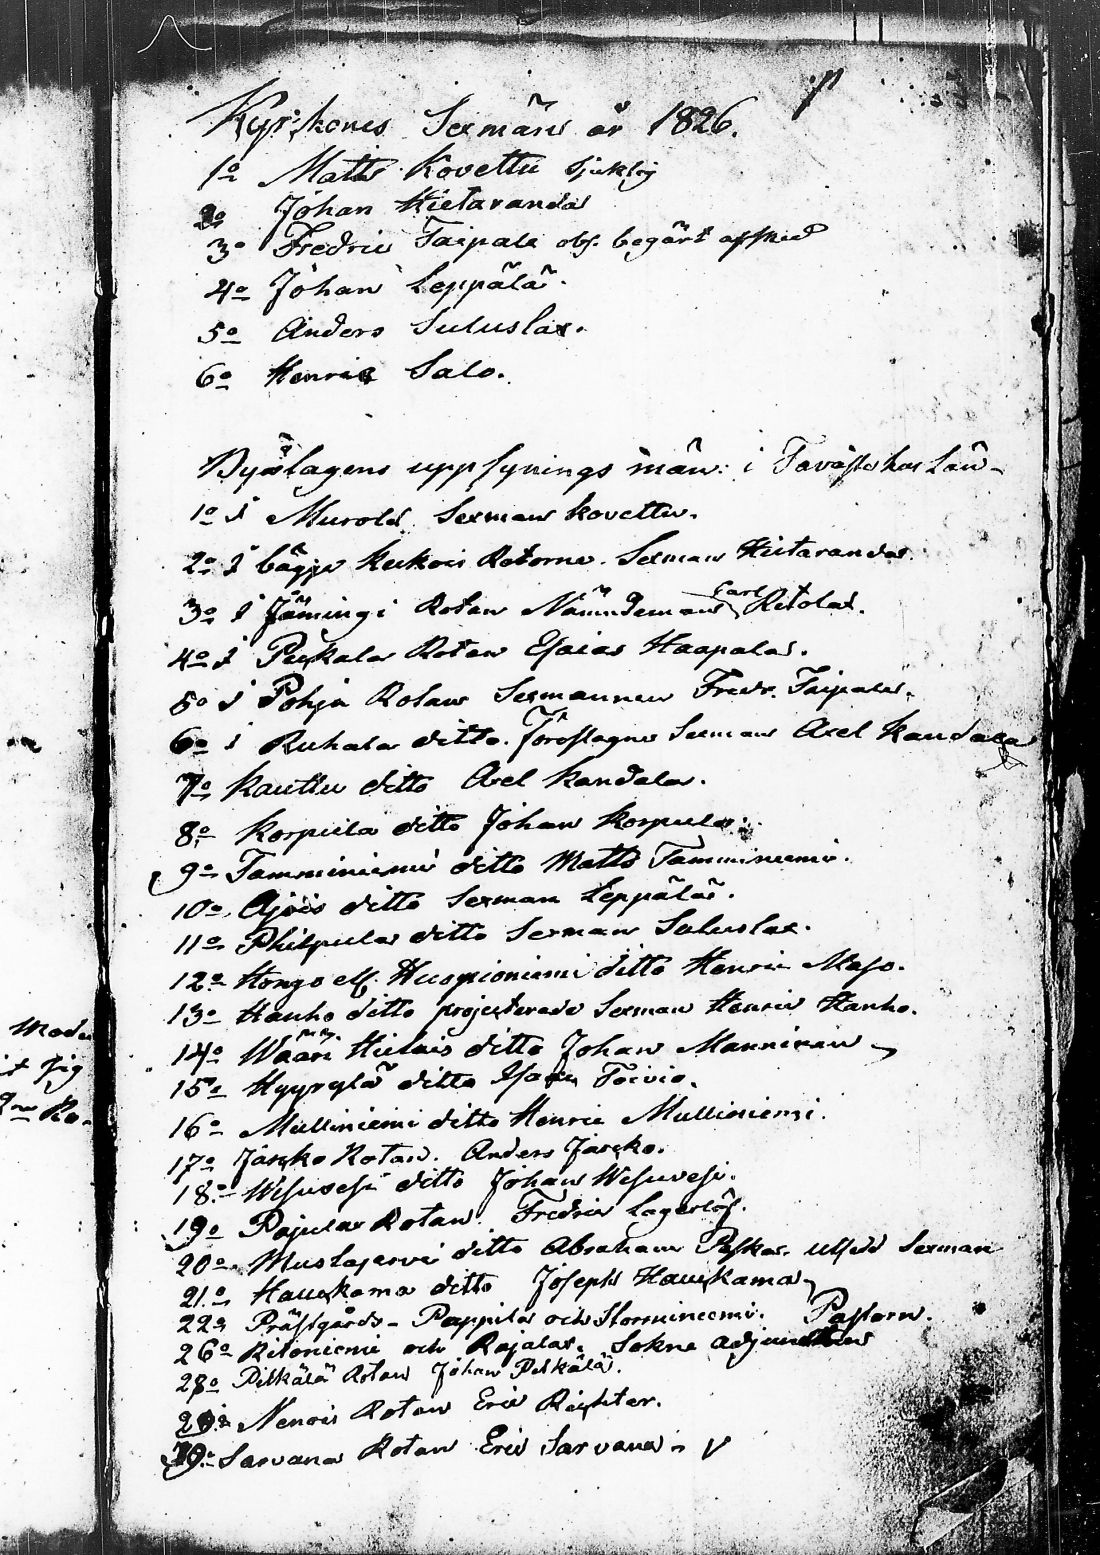 Kyrkones Sexmän år 1826.
1o Matts Kovettu sjuklig
2o Johan Hietaranda
3o Fredric Taipale obs. begärt afsked
4o Johan Leppälä.
5o Anders Suluslax.
6o Henric Salo.
Byalagens uppsynings män: i Tavastehus Län
1o I Murola Sexman Kovettu.
2o I bägge Keikois Rotorne. Sexman Hietaranda.
3o I Jämingi Rotan Nämndeman Carl Ritola.
4o I Peskala Rotan Esaias Haapala.
5o I Pohja Rotan Sexmannen Fredr. Taipale.
6o I Ruhala ditto. Föreslagne Sexman Axel Kandala
7o Kauttu ditto Axel Kandala.
8o Korpula ditto Johan Korpula.
9o Tamminiemi ditto Matts Tamminiemi.
10o Ajois ditto Sexman Leppälä.
11o Philpula ditto Sexman Suluslax.
12o Hongo ell. Huopioniemi ditto Henric Maso.
13o Hanho ditto projecterade Sexman Henric Hanho.
14o Wääri Hietais ditto Johan Manninen
15o Hyyrylä ditto Isaac Toivio.
16o Mulliniemi ditto Henric Mulliniemi.
17o Jäsko Rotan. Anders Jäsko.
18o Wisuvesi ditto Johan Wisuvesi.
19o Pajula Rotan Fredric Lagerlöf.
20o Mustajervi ditto Abraham Paska. utsedd Sexman
21o Hauskama ditto Joseph Hauskama
22o Prästgårds- Pappila och Storminiemi. Pastorn.
26o Ritoniemi och Rajala. Sokne adjuncten
28o Pelkälä Rotan Johan Pelkälä.
29o Nenois Rotan Eric Richter.
30o Sarvana Rotan Eric Sarvana